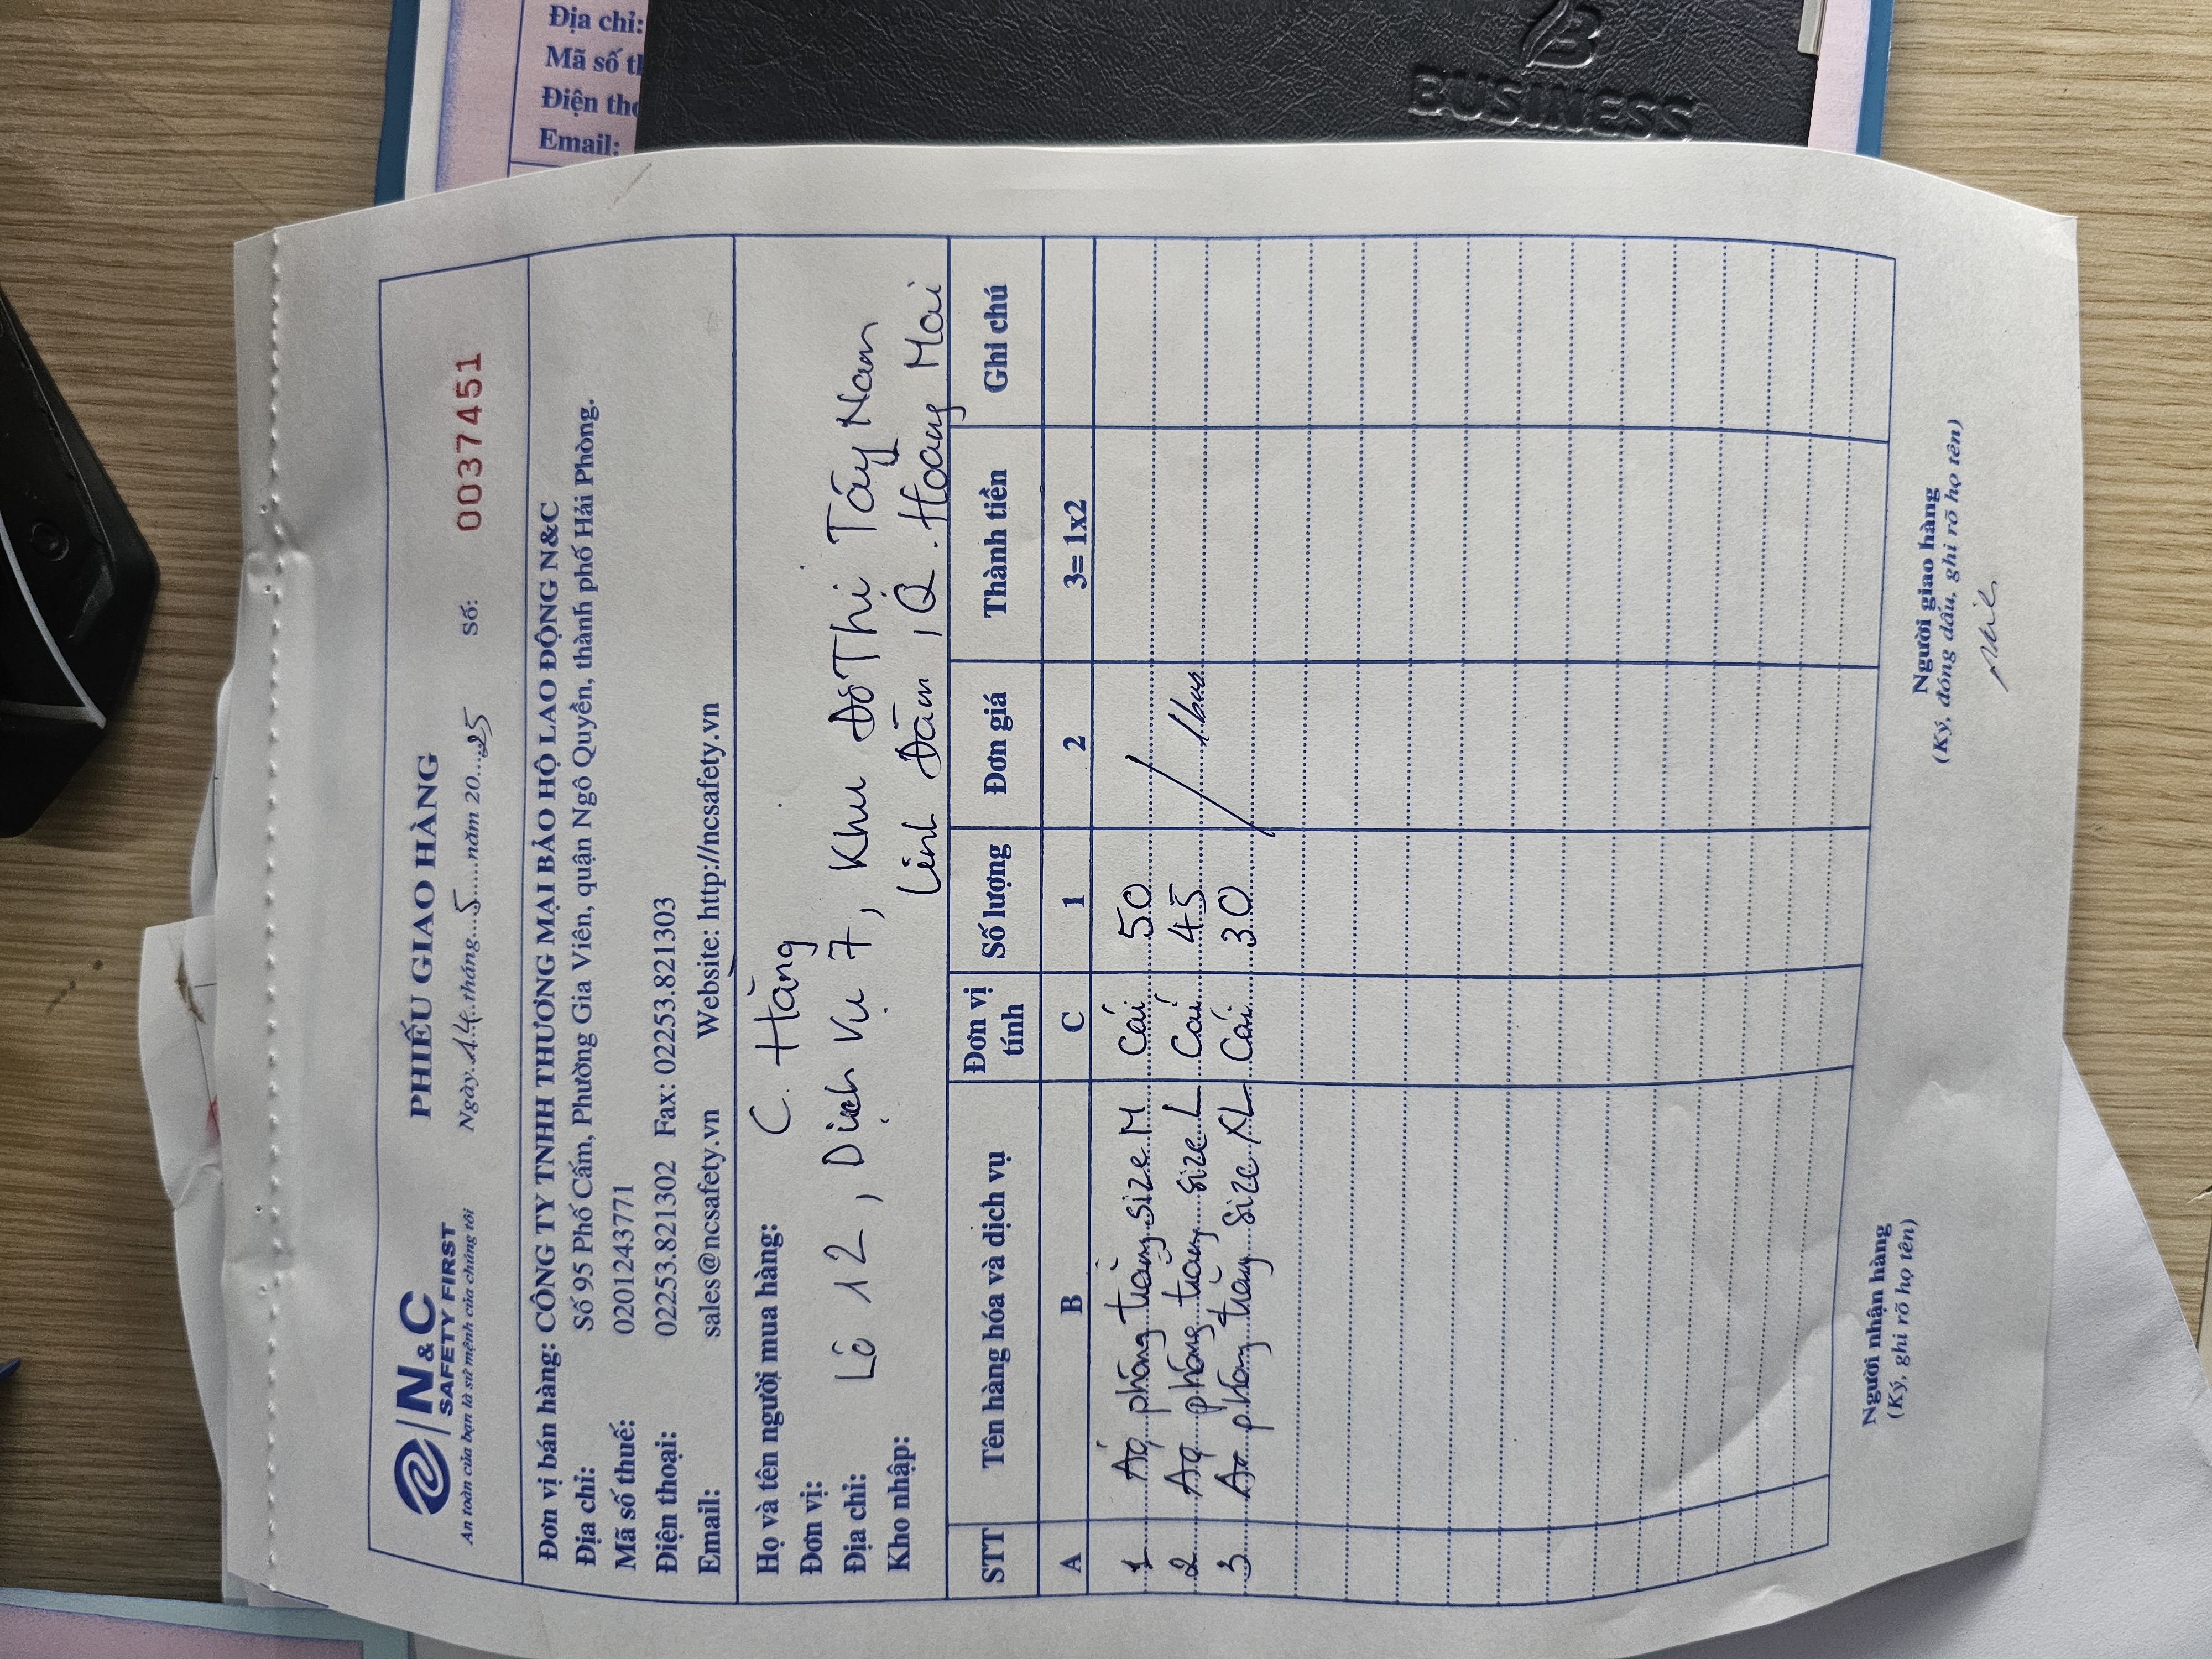 Địa chỉ:
Mã số
Điện
Email:
BUSINESS
N&C
SAFETY FIRST
An toàn của bạn là sứ mệnh của chúng tôi
PHIẾU GIAO HÀNG
Ngày 14 tháng 5 năm 2025 Số: 0037451
Đơn vị bán hàng: CÔNG TY TNHH THƯƠNG MẠI BẢO HỘ LAO ĐỘNG N&C
Địa chỉ: Số 95 Phố Cấm, Phường Gia Viên, quận Ngô Quyền, thành phố Hải Phòng.
Mã số thuế: 0201243771
Điện thoại: 02253.821302 Fax: 02253.821303
Email: sales@ncsafety.vn Website: http://ncsafety.vn
Họ và tên người mua hàng: C. Hằng
Đơn vị:
Địa chỉ: Lô 12, Dịch vụ 7, Khu Đô Thị Tây Nam
Kho nhập: Linh Đàm, Q. Hoàng Mai
STT Tên hàng hóa và dịch vụ Đơn vị tính Số lượng Đơn giá Thành tiền Ghi chú
A B C 1 2 3= 1x2
1 Áo phông trắng size M Cái 50
2 Áo phông trắng size L Cái 45
3 Áo phông trắng size XL Cái 30
Người nhận hàng Người giao hàng
(Ký, ghi rõ họ tên) (Ký, đóng dấu, ghi rõ họ tên)